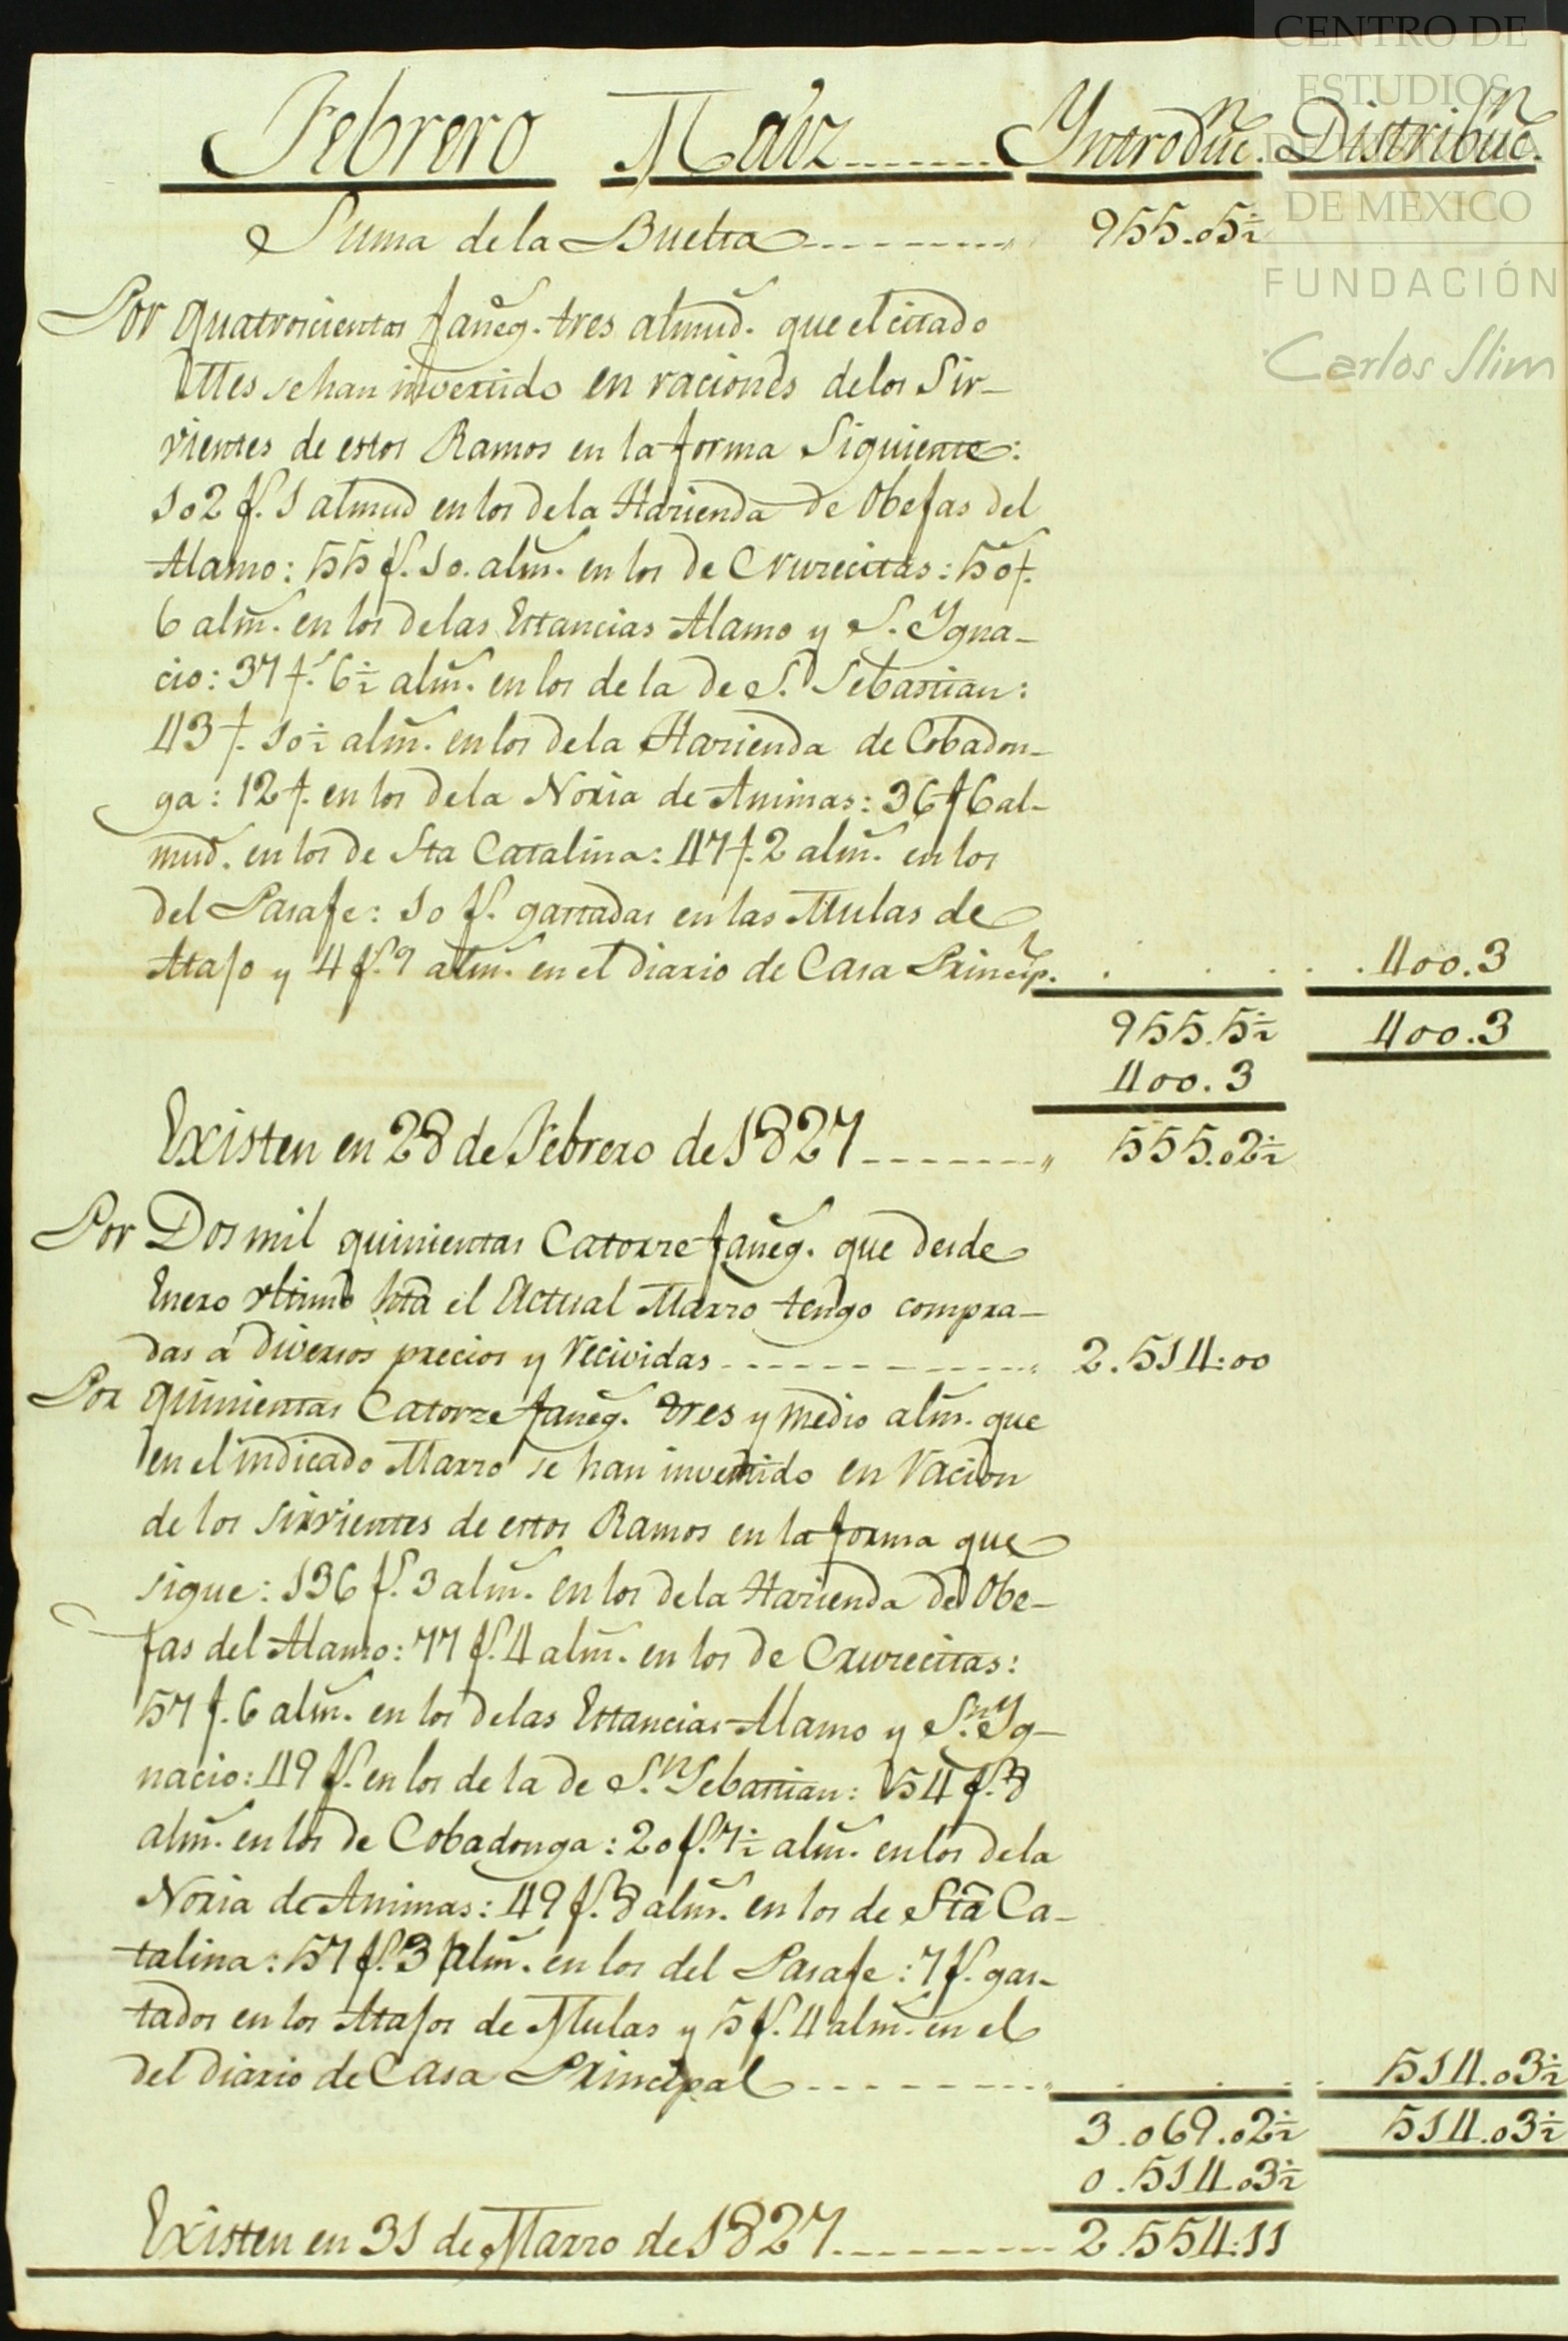 CENTRO DE
ESTUDIOS
DE HISTORIA
DE MEXICO
FUNDACIÓN
Carlos Slim
Febrero Maiz Yntroducn. Distribucn.
Suma de la Buelta 955.05½
Por quatrocientas faneg.s tres almud.s que el citado
Mes se han invertido en raciones de los Sir-
vientes de estos Ramos en la forma Siguiente:
102 f.s 1 almud en los de la Hazienda de Obejas del
Alamo: 55 f.s 10. alm.s en los de Cruzecitas: 50 f.s
6 alm.s en los de las Estancias Alamo y S. Ygna-
cio: 37 f.s 6½ alm.s en los de la de S. Sebastian:
43 f. 10½ alm.s en los de la Hazienda de Cobadon-
ga: 12 f. en los de la Noria de Animas: 36 f 6 al-
mud.s en los de Sta Catalina: 47 f. 2 alm.s en los
del Pasaje: 10 f.s gastadas en las Mulas de
Atajo y 4 f.s 9 alm.s en el diario de Casa Princip.l 400.3
955.5½ 400.3
400.3
Existen en 28 de Febrero de 1827 555.02½
Por Dos mil quinientas Catorze faneg.s que desde
Enero vltimo hta el Actual Marzo tengo compra-
das á diversos precios y recividas 2.514:00
Por quinientas Catorze faneg.s tres y medio alm.s que
en el indicado Marzo se han invertido en racion
de los sirvientes de estos Ramos en la forma que
sigue: 136 f.s 3 alm.s en los de la Hazienda de Obe-
jas del Alamo: 77 f.s 4 alm.s en los de Cruzecitas:
57 f. 6 alm.s en los de las Estancias Alamo y S.n Yg-
nacio: 49 f.s en los de la de S.n Sebastian: 54 f.s 8
alm.s en los de Cobadonga: 20 f.s 7½ alm.s en los de la
Noria de Animas: 49 f.s 8 alm.s en los de Sta Ca-
talina: 57 f.s 3 alm.s en los del Pasaje: 7 f.s gas-
tados en los Atajos de Mulas y 5 f.s 4 alm.s en el
del diario de Casa Principal 514.03½
3.069.02½ 514.03½
0.514.03½
Existen en 31 de Marzo de 1827 2.554:11